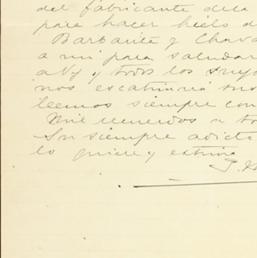 del fabricante de la
para hacer hielo d
Barbarita y Chava
a mi para saludar
a V. y todos los suyo
nos escatima sus
leemos siempre con
Mil recuerdos a to
Su siempre adicto
lo quiere y estima